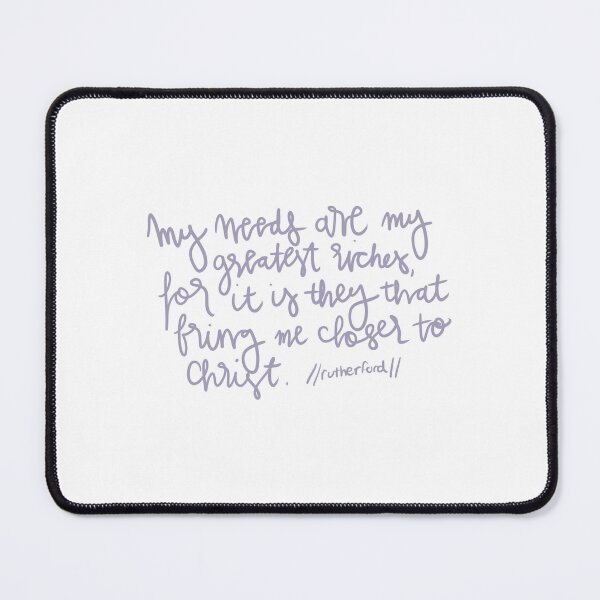 my needs are my
greatest riches,
for it is they that
bring me closer to
Christ. //rutherford//